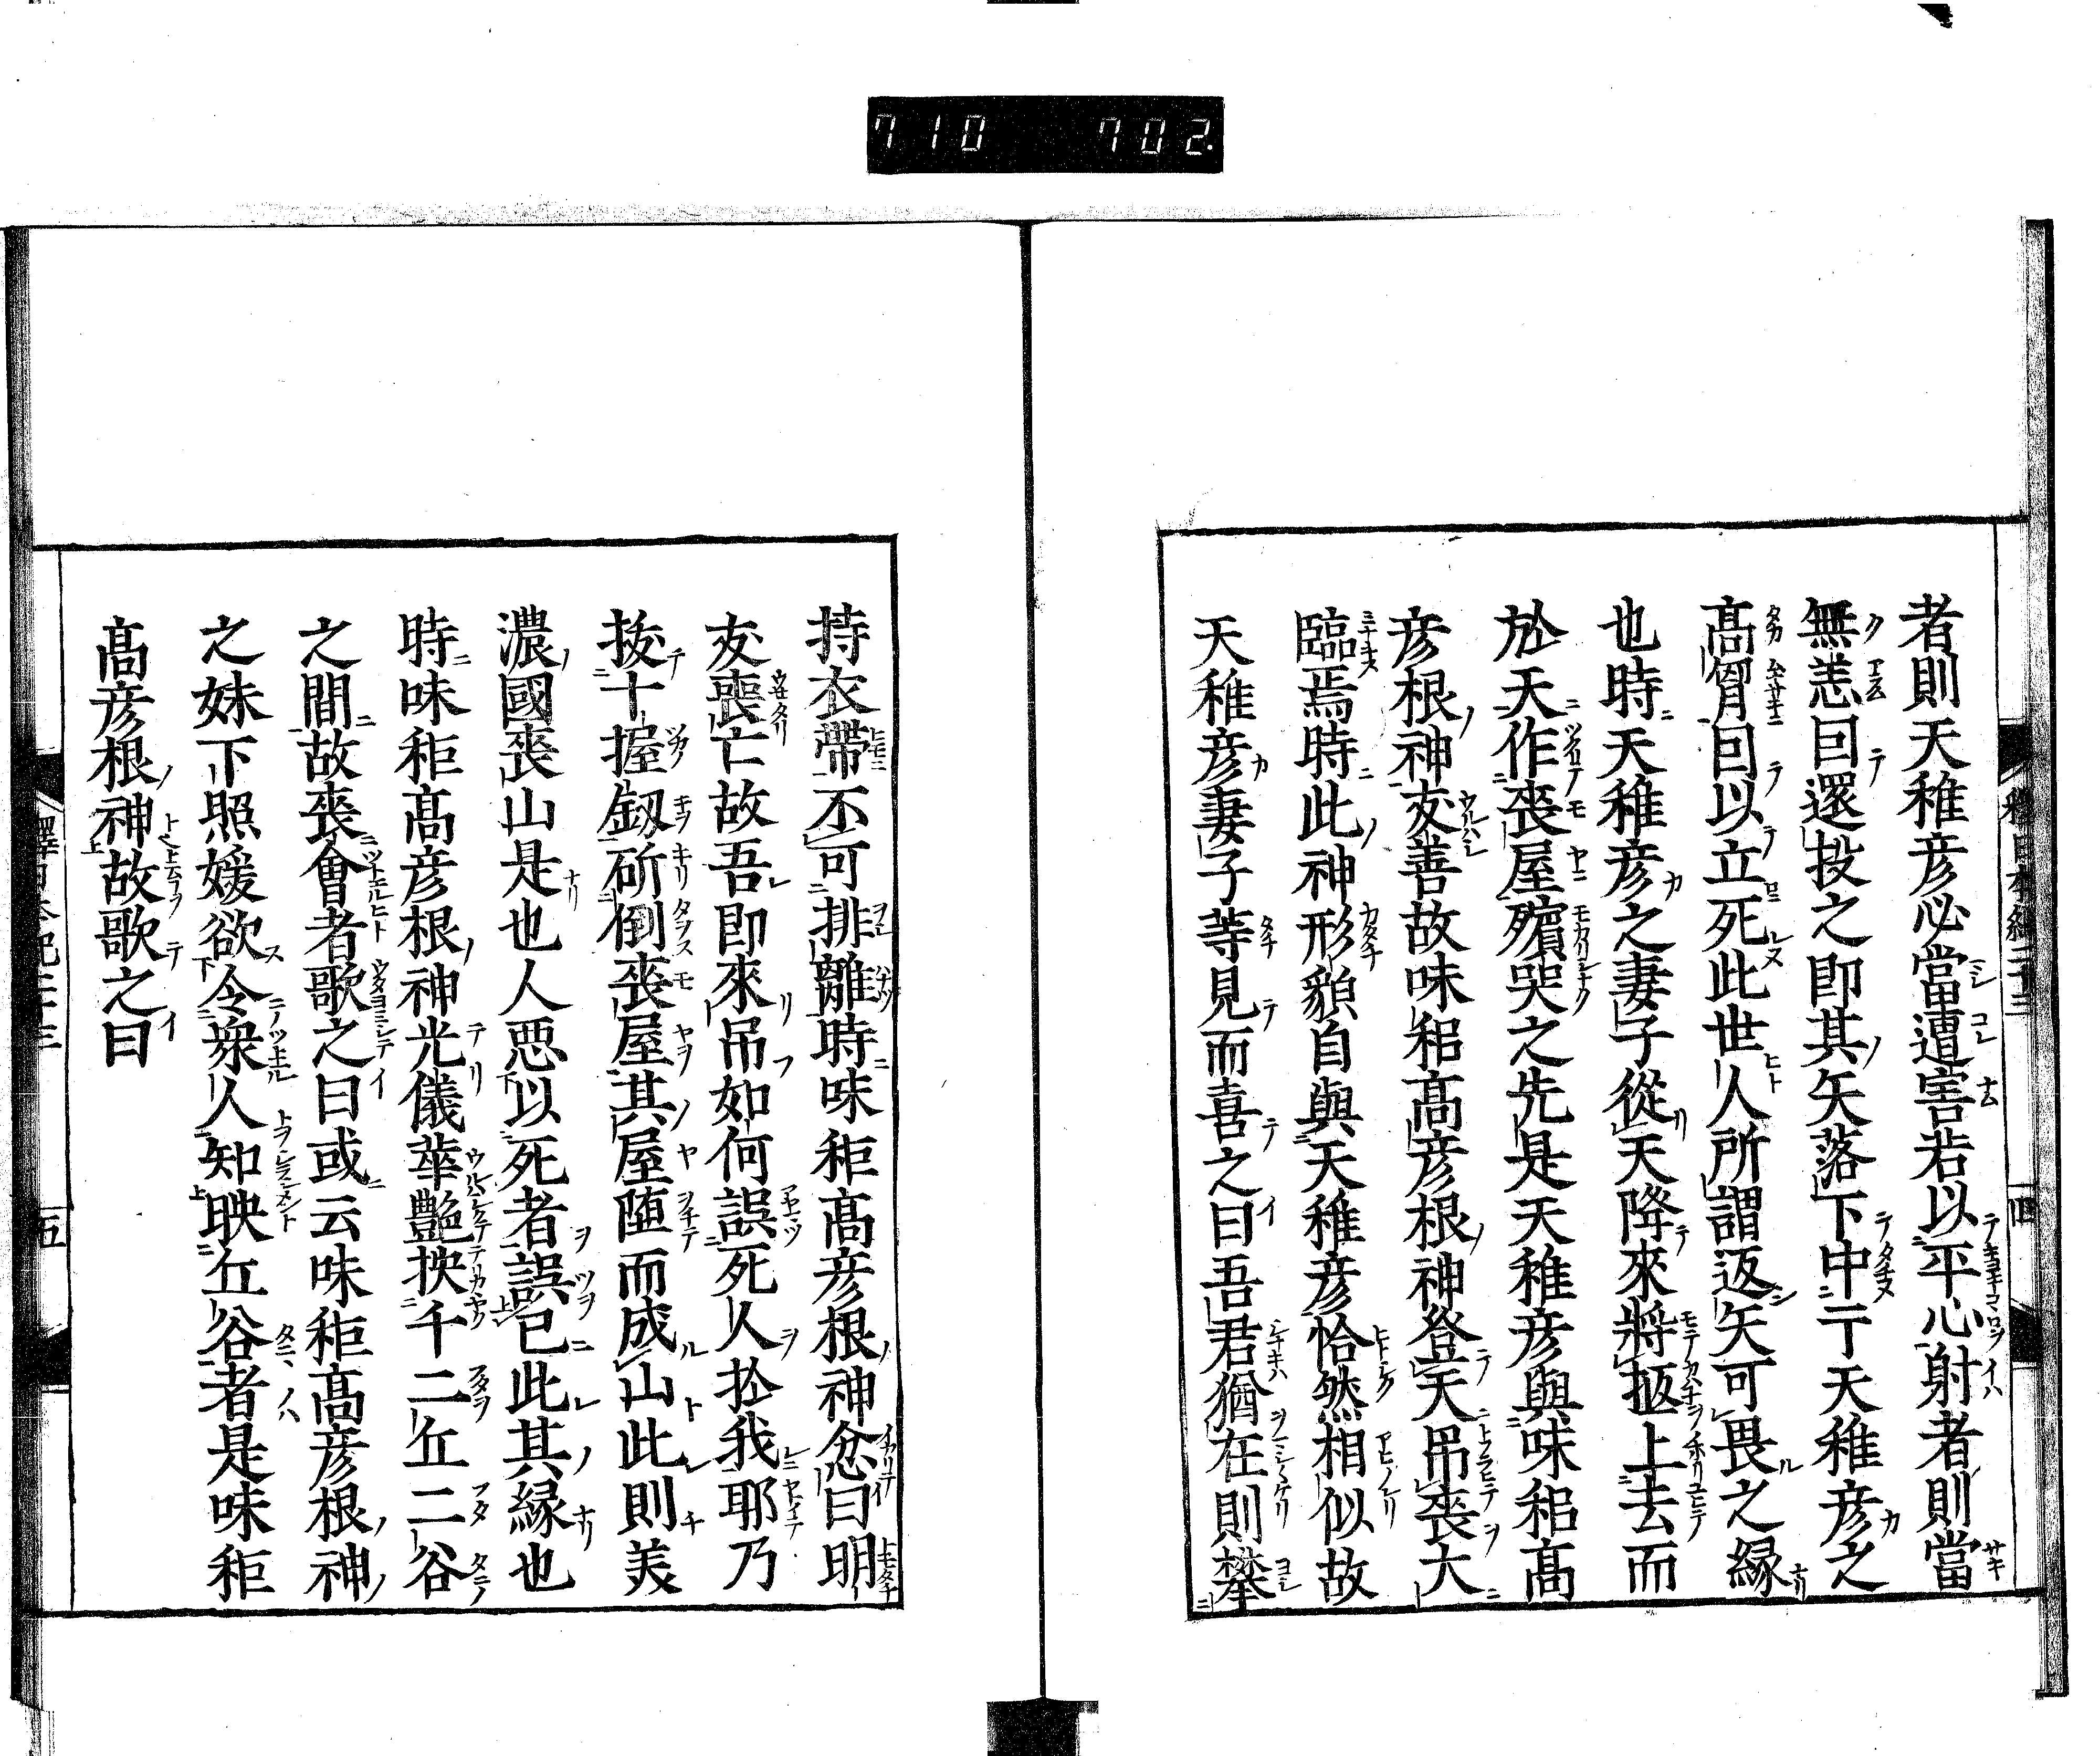 710 702.
者則天稚彦必當遭害若以平心射者則當
無恙囙還投之即其矢落下中于天稚彦之
髙胷囙以立死此世人所謂返矢可畏之縁
也時天稚彦之妻子從天降來將抠上去而
於天作喪屋殯哭之先是天稚彦與味耜髙
彦根神友善故味耜髙彦根神登天吊喪大
臨焉時此神形貌自與天稚彦恰然相似故
天稚彦妻子等見而喜之曰吾君猶在則攀
持衣帶不可排離時味耟髙彦根神忿曰朋
友喪亡故吾即來吊如何誤死人於我耶乃
拔十握釼斫倒喪屋其屋墮而成山此則美
濃國喪山是也人惡以死者誤已此其縁也
時味耟髙彦根神光儀華艶抰千二丘二谷
之間故喪會者歌之曰或云味耟髙彦根神
之妹下照媛欲令衆人知映丘谷者是味耟
髙彦根神故歌之曰
五